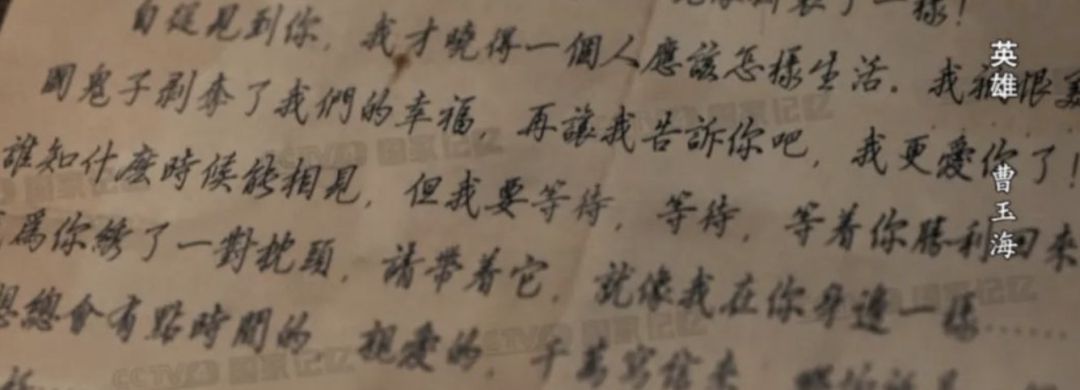 了一樣！
自從見到你，我才曉得一個人應該怎樣生活。我恨
國鬼子剥奪了我們的幸福，再讓我告訴你吧，我更愛你了！
誰知什麽時候能相見，但我要等待，等待，等着你勝利回來
爲你綉了一對枕頭，請帶着它，就像我在你身邊一樣……
想總會有點時間的，親愛的，千萬寫信來
英雄 曹玉海